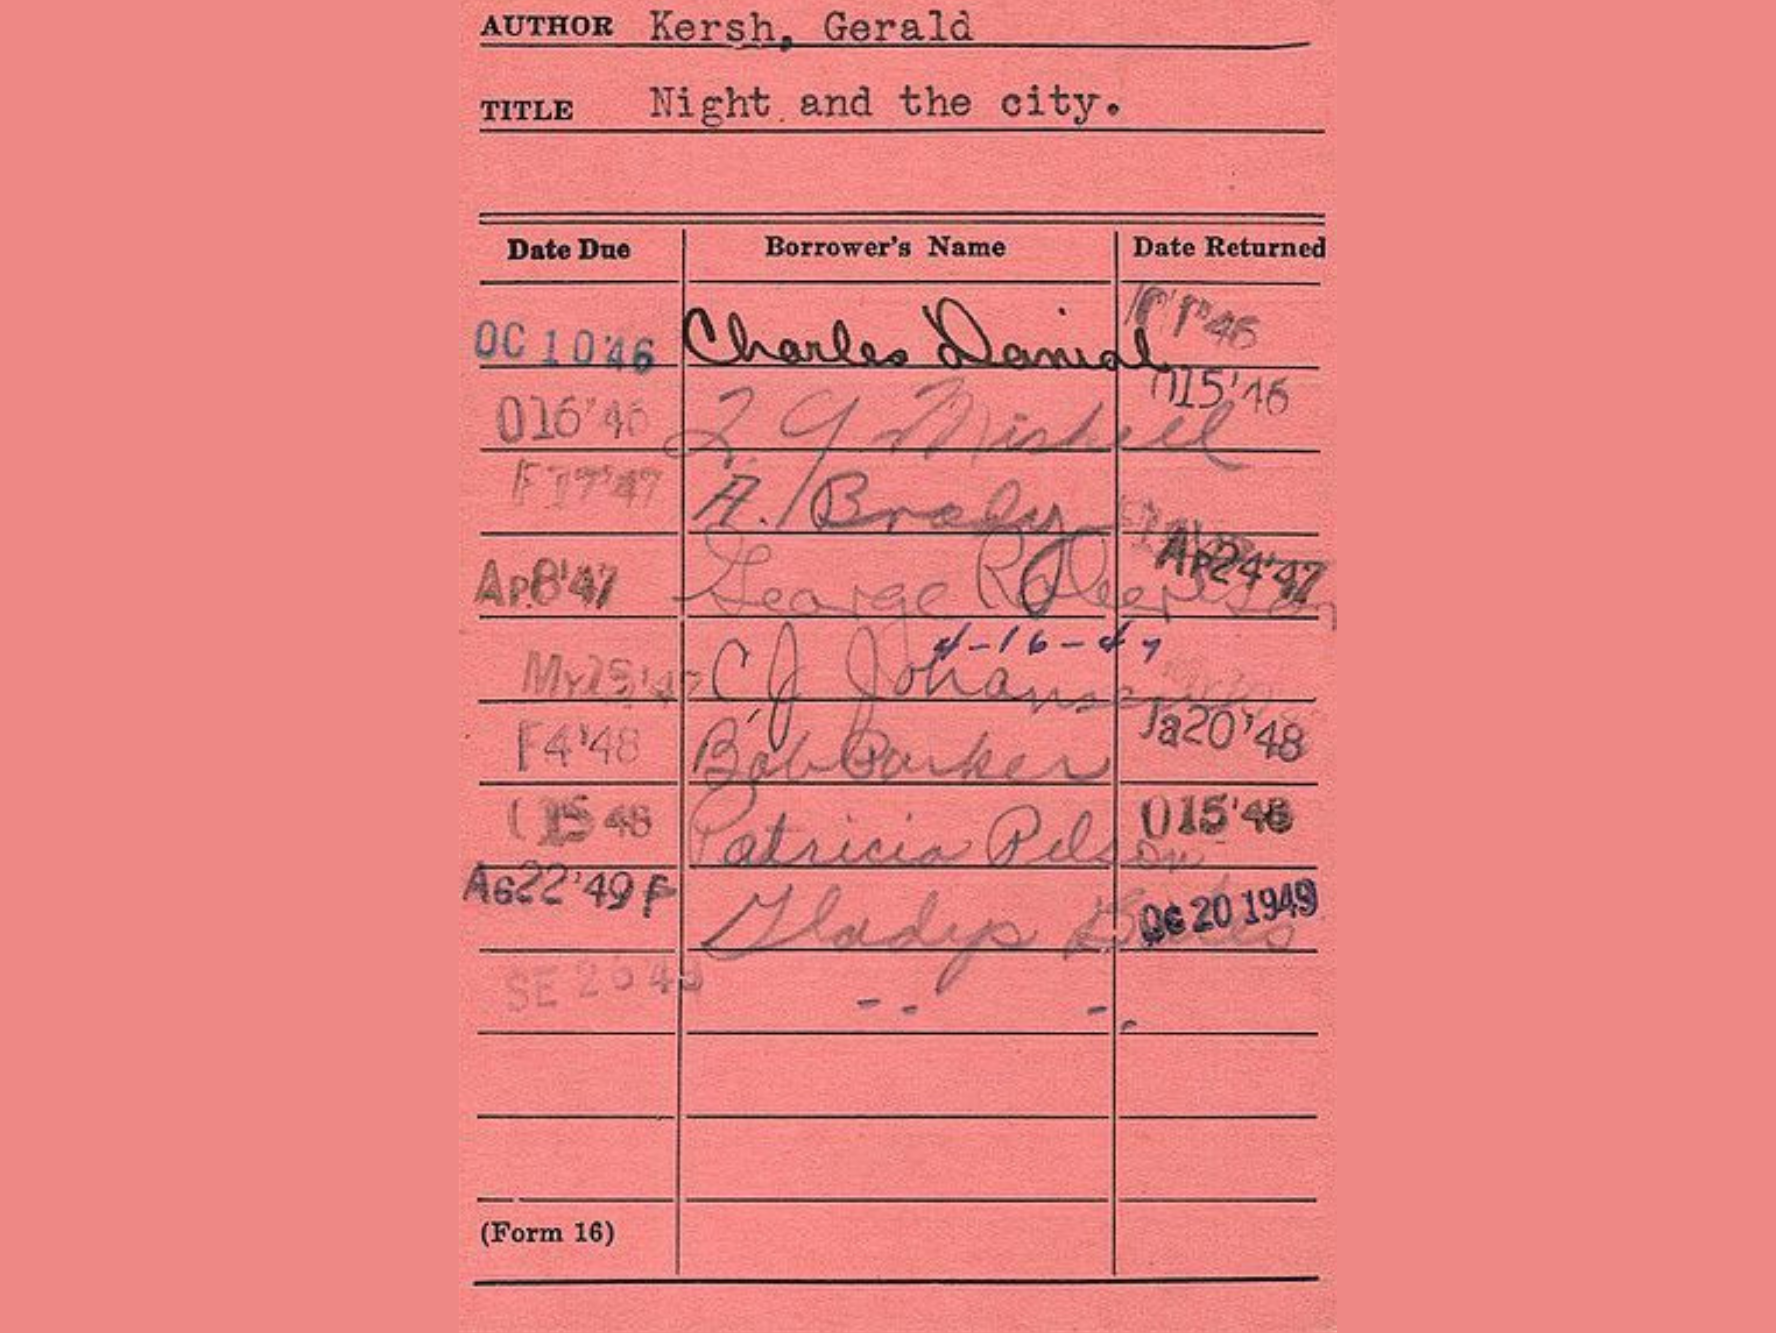 AUTHOR Kersh, Gerald
TITLE Night and the city.
Date Due Borrower's Name Date Returned
OC 10'46 Charles Danial '46
O16'46 Mishell O15'46
F17'47 A. Brady
Ap8'47 George Robertson Ap24'47
4-16-47
My15'47 C J Johansen
F4'48 Bob Barker Ja20'48
15 48 Patricia Pelson O15'48
AG22'49 F Gladys Oc 20 1949
SE 2 49 -- --
(Form 16)